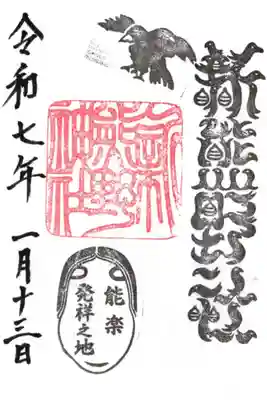 新熊野神社
能楽
発祥之地
令和七年 一月十三日